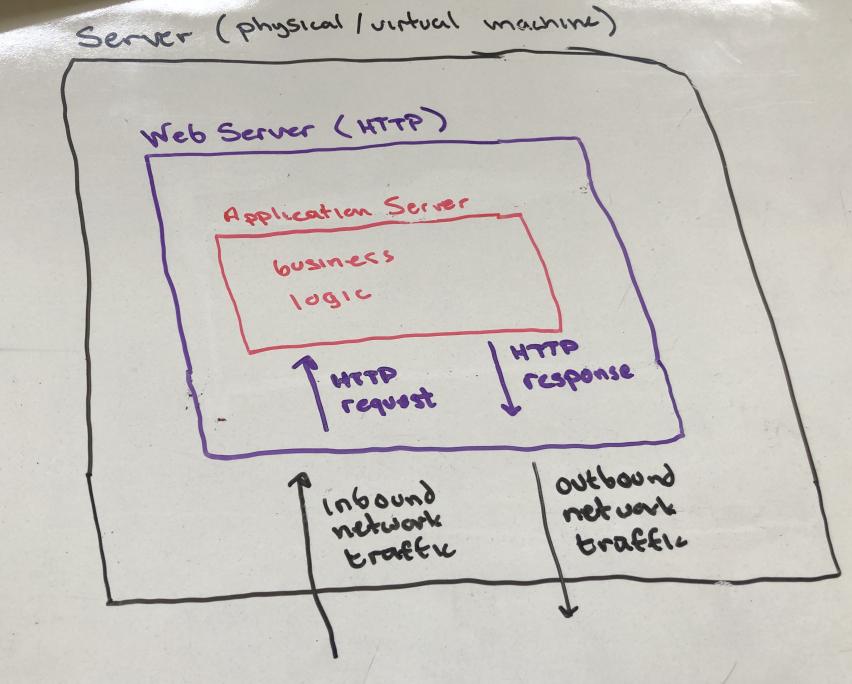 Server (physical/virtual machine)
Web Server (HTTP)
Application Server
business
logic
HTTP
request
HTTP
response
inbound
network
traffic
outbound
network
traffic